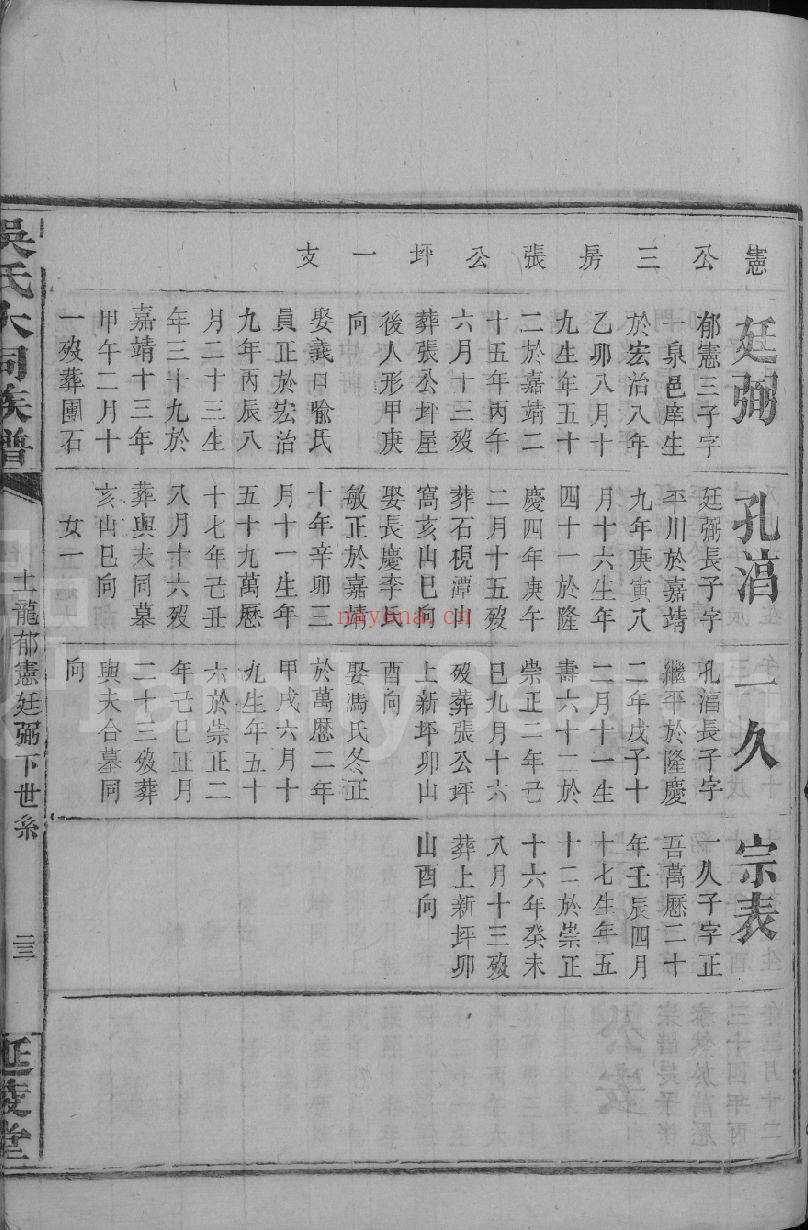 憲公三房張公坪一支
廷弼
郁憲三子字
一泉邑庠生
於宏治八年
乙卯八月十
九生年五十
二於嘉靖二
十五年丙午
六月十三歿
葬張公坪屋
後人形甲庚
向
娶義口喻氏
員正於宏治
九年丙辰八
月二十三生
年三十九於
嘉靖十三年
甲午二月十
一歿葬團石
孔湻
廷弼長子字
平川於嘉靖
九年庚寅八
月十六生年
四十一於隆
慶四年庚午
二月十五歿
葬石硯潭山
窩亥山巳向
娶長慶李氏
敏正於嘉靖
十年辛卯三
月十一生年
五十九萬歷
十七年己丑
八月十六歿
葬與夫同墓
亥山巳向
女一
一久
孔湻長子字
繼平於隆慶
二年戊子十
二月十一生
壽六十二於
崇正二年己
巳九月十六
歿葬張公坪
上新坪卯山
酉向
娶馮氏冬正
於萬歷二年
甲戌六月十
九生年五十
六於崇正二
年己巳正月
二十三歿葬
與夫合墓同
向
宗表
一久子字正
吾萬歷二十
年壬辰四月
十七生年五
十二於崇正
十六年癸未
八月十三歿
葬上新坪卯
山酉向
吳氏大同族譜
士龍郁憲廷弼下世系
二三
延陵堂
nayona.cn